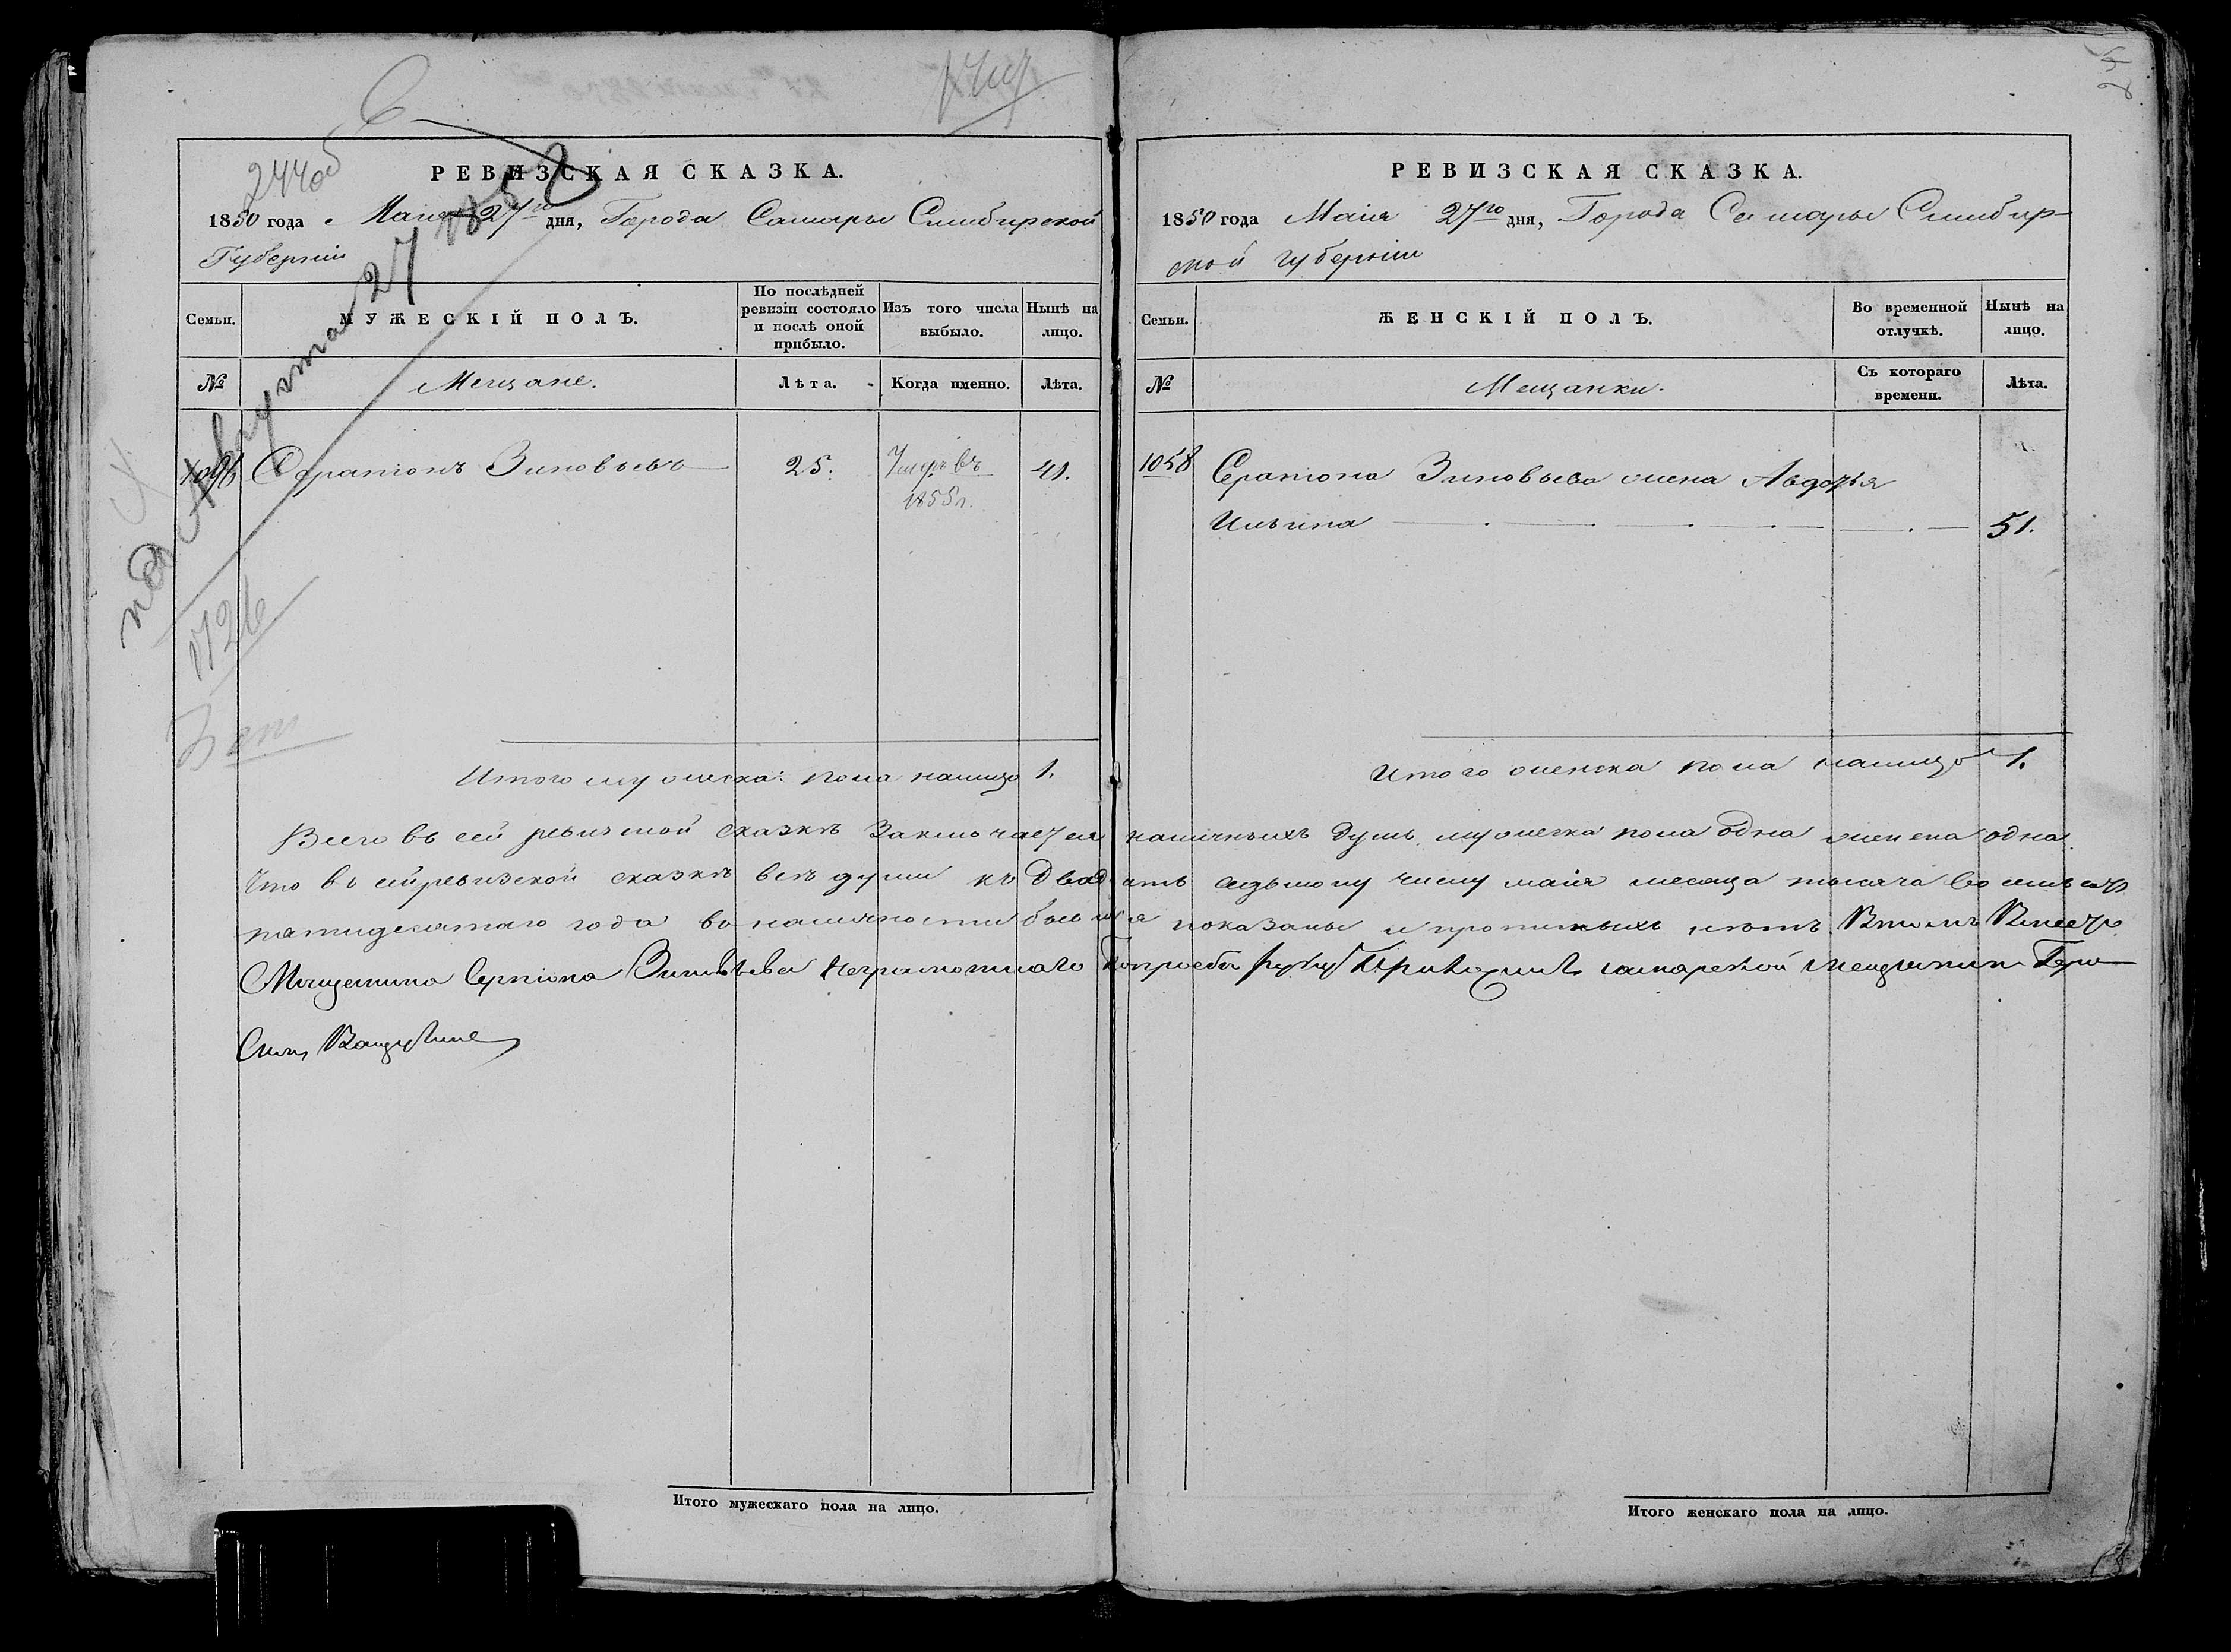 244об
РЕВИЗСКАЯ СКАЗКА.
1850 года Маія 27го дня, Города Самары Симбирской
Губерніи
Семьи.
МУЖЕСКІЙ ПОЛЪ.
По послѣдней ревизіи состояло и послѣ оной прибыло.
Изъ того числа выбыло.
Нынѣ на лицо.
№
Мещане.
Лѣта.
Когда именно.
Лѣта.
Серапіонъ Зиновьевъ
25.
Умеръ въ
1855 г.
41.
1726
Итого мужеска: пола налицо 1.
РЕВИЗСКАЯ СКАЗКА.
1850 года Маія 27го дня, Города Самары Симбир-
ской губерніи
Семьи.
ЖЕНСКІЙ ПОЛЪ.
Во временной отлучкѣ.
Нынѣ на лицо.
№
Мещанки.
Съ котораго времени.
Лѣта.
1058
Серапіона Зиновьева жена Авдотья
Ильина
51.
Итого женска пола налицо 1.
Всего въ сей ревизской сказкѣ заключается наличныхъ душъ мужеска пола одна женска одна.
Что въ сей ревизской сказкѣ всѣ души къ двадцать седьмому числу маія месяца тысяча восемьсотъ
пятидесятаго года въ наличности показаны и прописныхъ нѣтъ Втомъ Вместо
Мещенина Серпіона Зиновьева Неграмотнаго самарской мещенин
Итого мужескаго пола на лицо.
Итого женскаго пола на лицо.